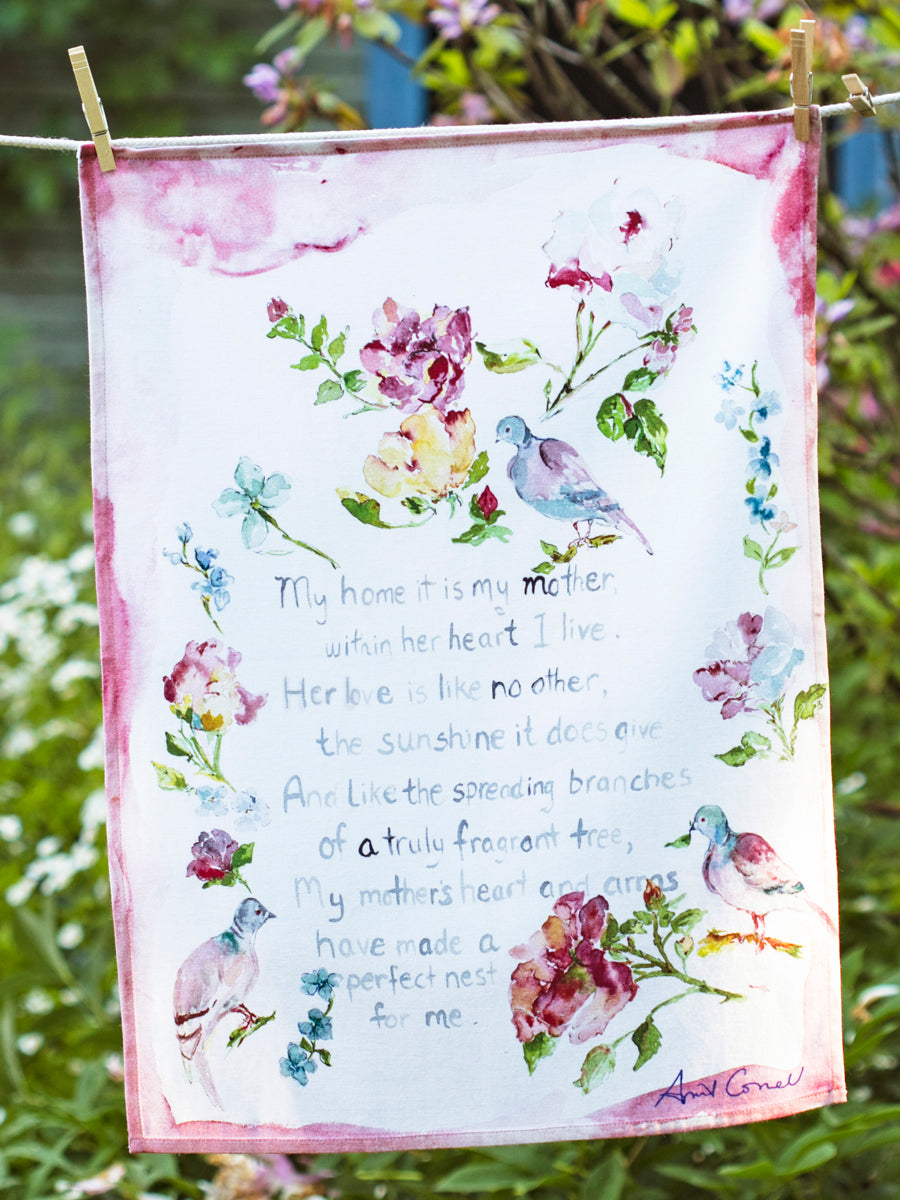 My home it is my mother,
within her heart I live.
Her love is like no other,
the sunshine it does give
And like the spreading branches
of a truly fragrant tree,
My mother's heart and arms
have made a
perfect nest
for me.